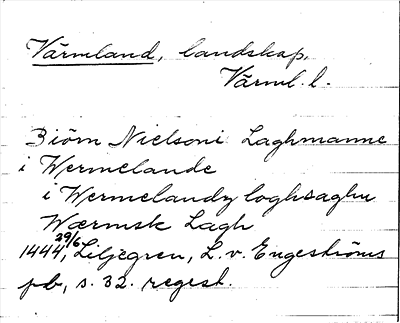 Värmland, landskap.
Värml. l.
Biörn Nielsoni Laghmanne
i Wermelande
i Wermelandz loghsaghu
Wærmsk Lagh
1444 29/6, Liljegren, L. v. Engeströms
pb, s. 32. regest.